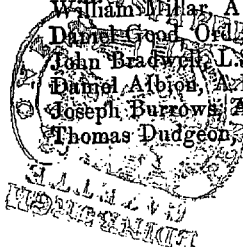 William Millar, A
Daniel Good, Ord
John Bradwell, L.s
Daniel Albion, A.
Joseph Burrows,
Thomas Dudgeon,
GAZETTE
EDINBURGH